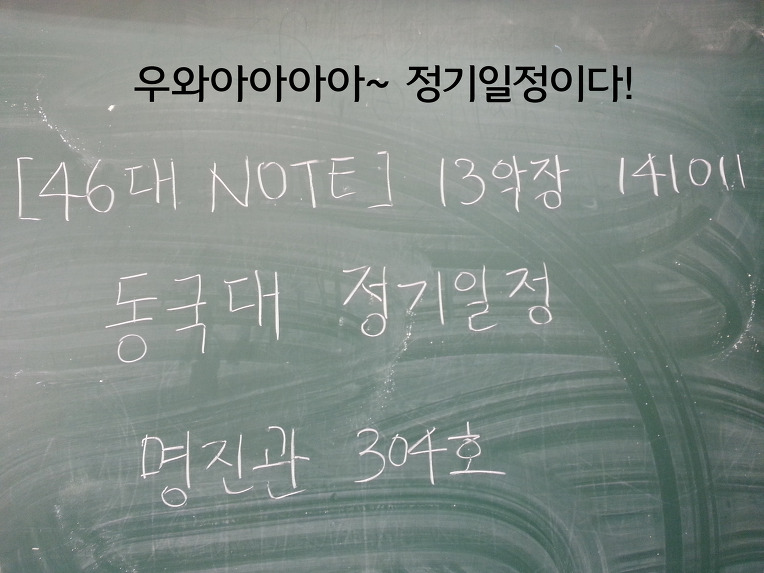 우와아아아아~ 정기일정이다!
[46대 NOTE] 13악장 141011
동국대 정기일정
명진관 304호